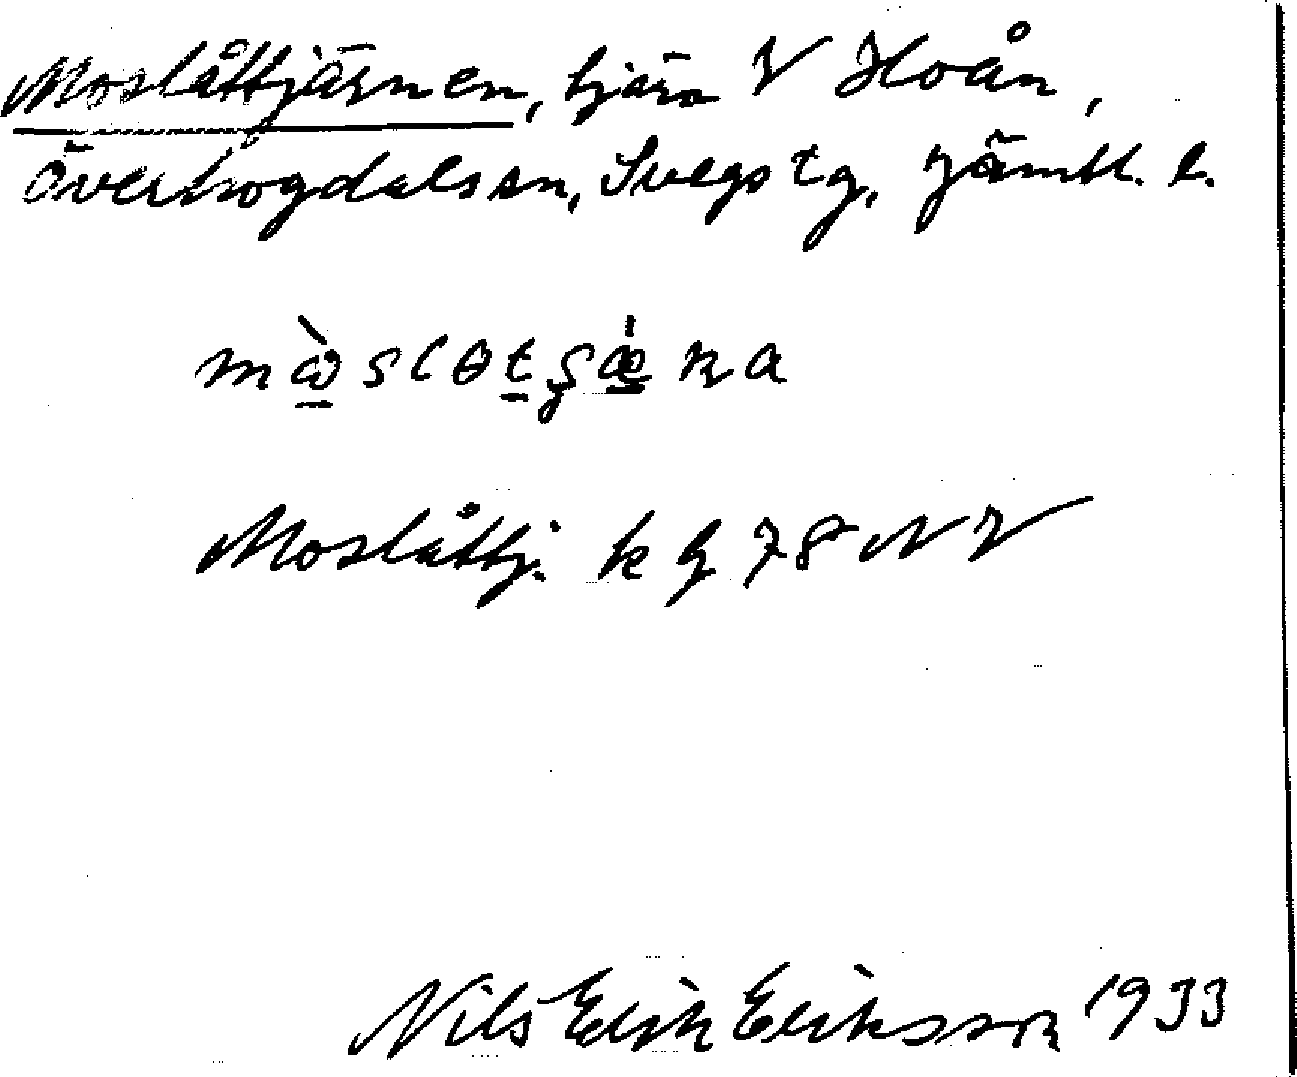 Moslåttjärnen, tjärn V Hoån,
Överhogdals sn, Svegs tg, Jämtl. l.
mὼ̲slɵt̲ʂǽ̲ɳa
Moslåttj. k bl 78 NV
Nils Erik Eriksson 1933